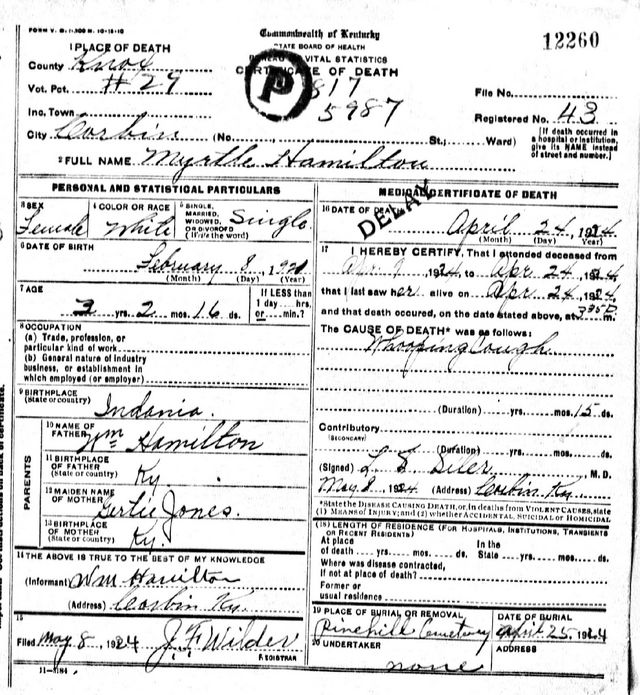 Commonwealth of Kentucky
STATE BOARD OF HEALTH
BUREAU OF VITAL STATISTICS
CERTIFICATE OF DEATH
12260
1 PLACE OF DEATH
County Knox
Vot. Pct. #29
Inc. Town
City Corbin (No. St.; Ward)
P
817
5987
File No.
Registered No. 43
(If death occurred in
a hospital or institution,
give its NAME instead
of street and number.)
2 FULL NAME Myrtle Hamilton
PERSONAL AND STATISTICAL PARTICULARS
3 SEX
Female
4 COLOR OR RACE
White
5 SINGLE,
MARRIED,
WIDOWED,
OR DIVORCED
(Write the word)
Single
6 DATE OF BIRTH
February 8, 1921
(Month) (Day) (Year)
7 AGE
3 yrs. 2 mos. 16 ds.
IF LESS than
1 day hrs.
or min.?
8 OCCUPATION
(a) Trade, profession, or
particular kind of work
(b) General nature of industry
business, or establishment in
which employed (or employer)
9 BIRTHPLACE
(State or country)
Indania.
PARENTS
10 NAME OF
FATHER Wm Hamilton
11 BIRTHPLACE
OF FATHER
(State or country) Ky.
12 MAIDEN NAME
OF MOTHER Gertie Jones.
13 BIRTHPLACE
OF MOTHER
(State or country) Ky.
14 THE ABOVE IS TRUE TO THE BEST OF MY KNOWLEDGE
(Informant) Wm Hamilton
(Address) Corbin Ky.
15
Filed May 8, 1924 J. F. Wilder
REGISTRAR
11-3184
MEDICAL CERTIFICATE OF DEATH
DELAY
16 DATE OF DEATH
April 24, 1924
(Month) (Day) (Year)
17 I HEREBY CERTIFY, That I attended deceased from
Apr 9, 1924, to Apr 24, 1924,
that I last saw her alive on Apr 24, 1924,
and that death occured, on the date stated above, at 335P.
The CAUSE OF DEATH* was as follows:
Whooping Cough
(Duration) yrs. mos. 15 ds.
Contributory
(SECONDARY)
(Duration) yrs. mos. ds.
(Signed) L. S. Siler M.D.
May 8, 1924 (Address) Corbin Ky.
*State the DISEASE CAUSING DEATH, or, in deaths from VIOLENT CAUSES, state
(1) MEANS OF INJURY; and (2) whether ACCIDENTAL SUICIDAL or HOMICIDAL
(18) LENGTH OF RESIDENCE (FOR HOSPITALS, INSTITUTIONS, TRANSIENTS
OR RECENT RESIDENTS)
At place
of death yrs. mos. ds.
In the
State yrs. mos. ds.
Where was disease contracted,
if not at place of death?
Former or
usual residence
19 PLACE OF BURIAL OR REMOVAL
Pinehill Cemetery
DATE OF BURIAL
April 25, 1924
20 UNDERTAKER
none
ADDRESS